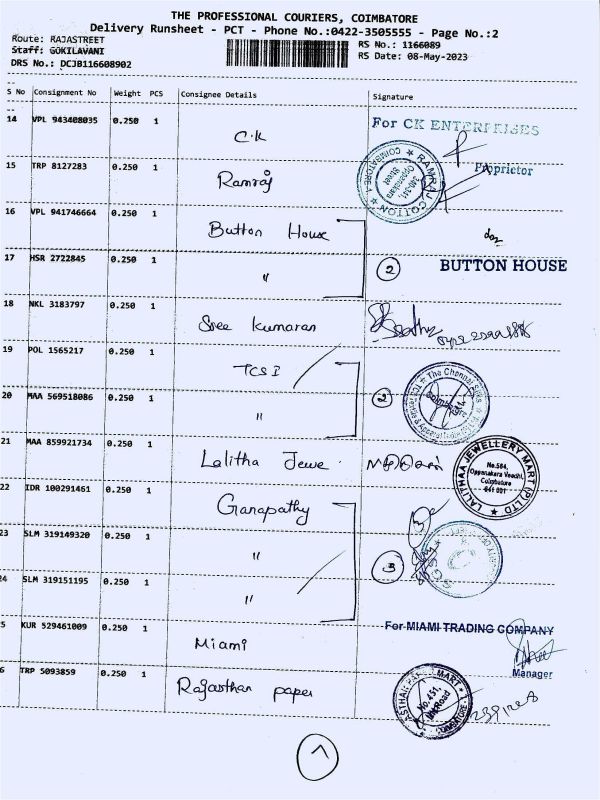 THE PROFESSIONAL COURIERS, COIMBATORE
Delivery Runsheet - PCT - Phone No.:0422-3505555 - Page No.:2
Route: RAJASTREET
Staff: GOKILAVANI
DRS No.: DCJB116608902
RS No.: 1166089
RS Date: 08-May-2023
S No Consignment No Weight PCS Consignee Details Signature
14 VPL 943408035 0.250 1 C.K
For CK ENTERPRISES
Proprietor
15 TRP 8127283 0.250 1 Ramraj
RAMRAJ COTTON COIMBATORE
Oppanakara
Street
16 VPL 941746664 0.250 1 Button House
17 HSR 2722845 0.250 1 "
2
BUTTON HOUSE
18 NKL 3183797 0.250 1 Sree Kumaran
19 POL 1565217 0.250 1 TCS I
20 MAA 569518086 0.250 1 "
2
The Chennai Silks
21 MAA 859921734 0.250 1 Lalitha Jewe.
LALITHAA JEWELLERY MART (P) LTD
No.584,
Oppanakara Veedhi,
Coimbatore
641 001
22 IDR 100291461 0.250 1 Ganapathy
23 SLM 319149320 0.250 1 "
24 SLM 319151195 0.250 1 "
3
5 KUR 529461009 0.250 1 Miami
For MIAMI TRADING COMPANY
Manager
6 TRP 5093859 0.250 1 Rajasthan paper
ASTHAN PAPER MART
No.451,
COIMBATORE